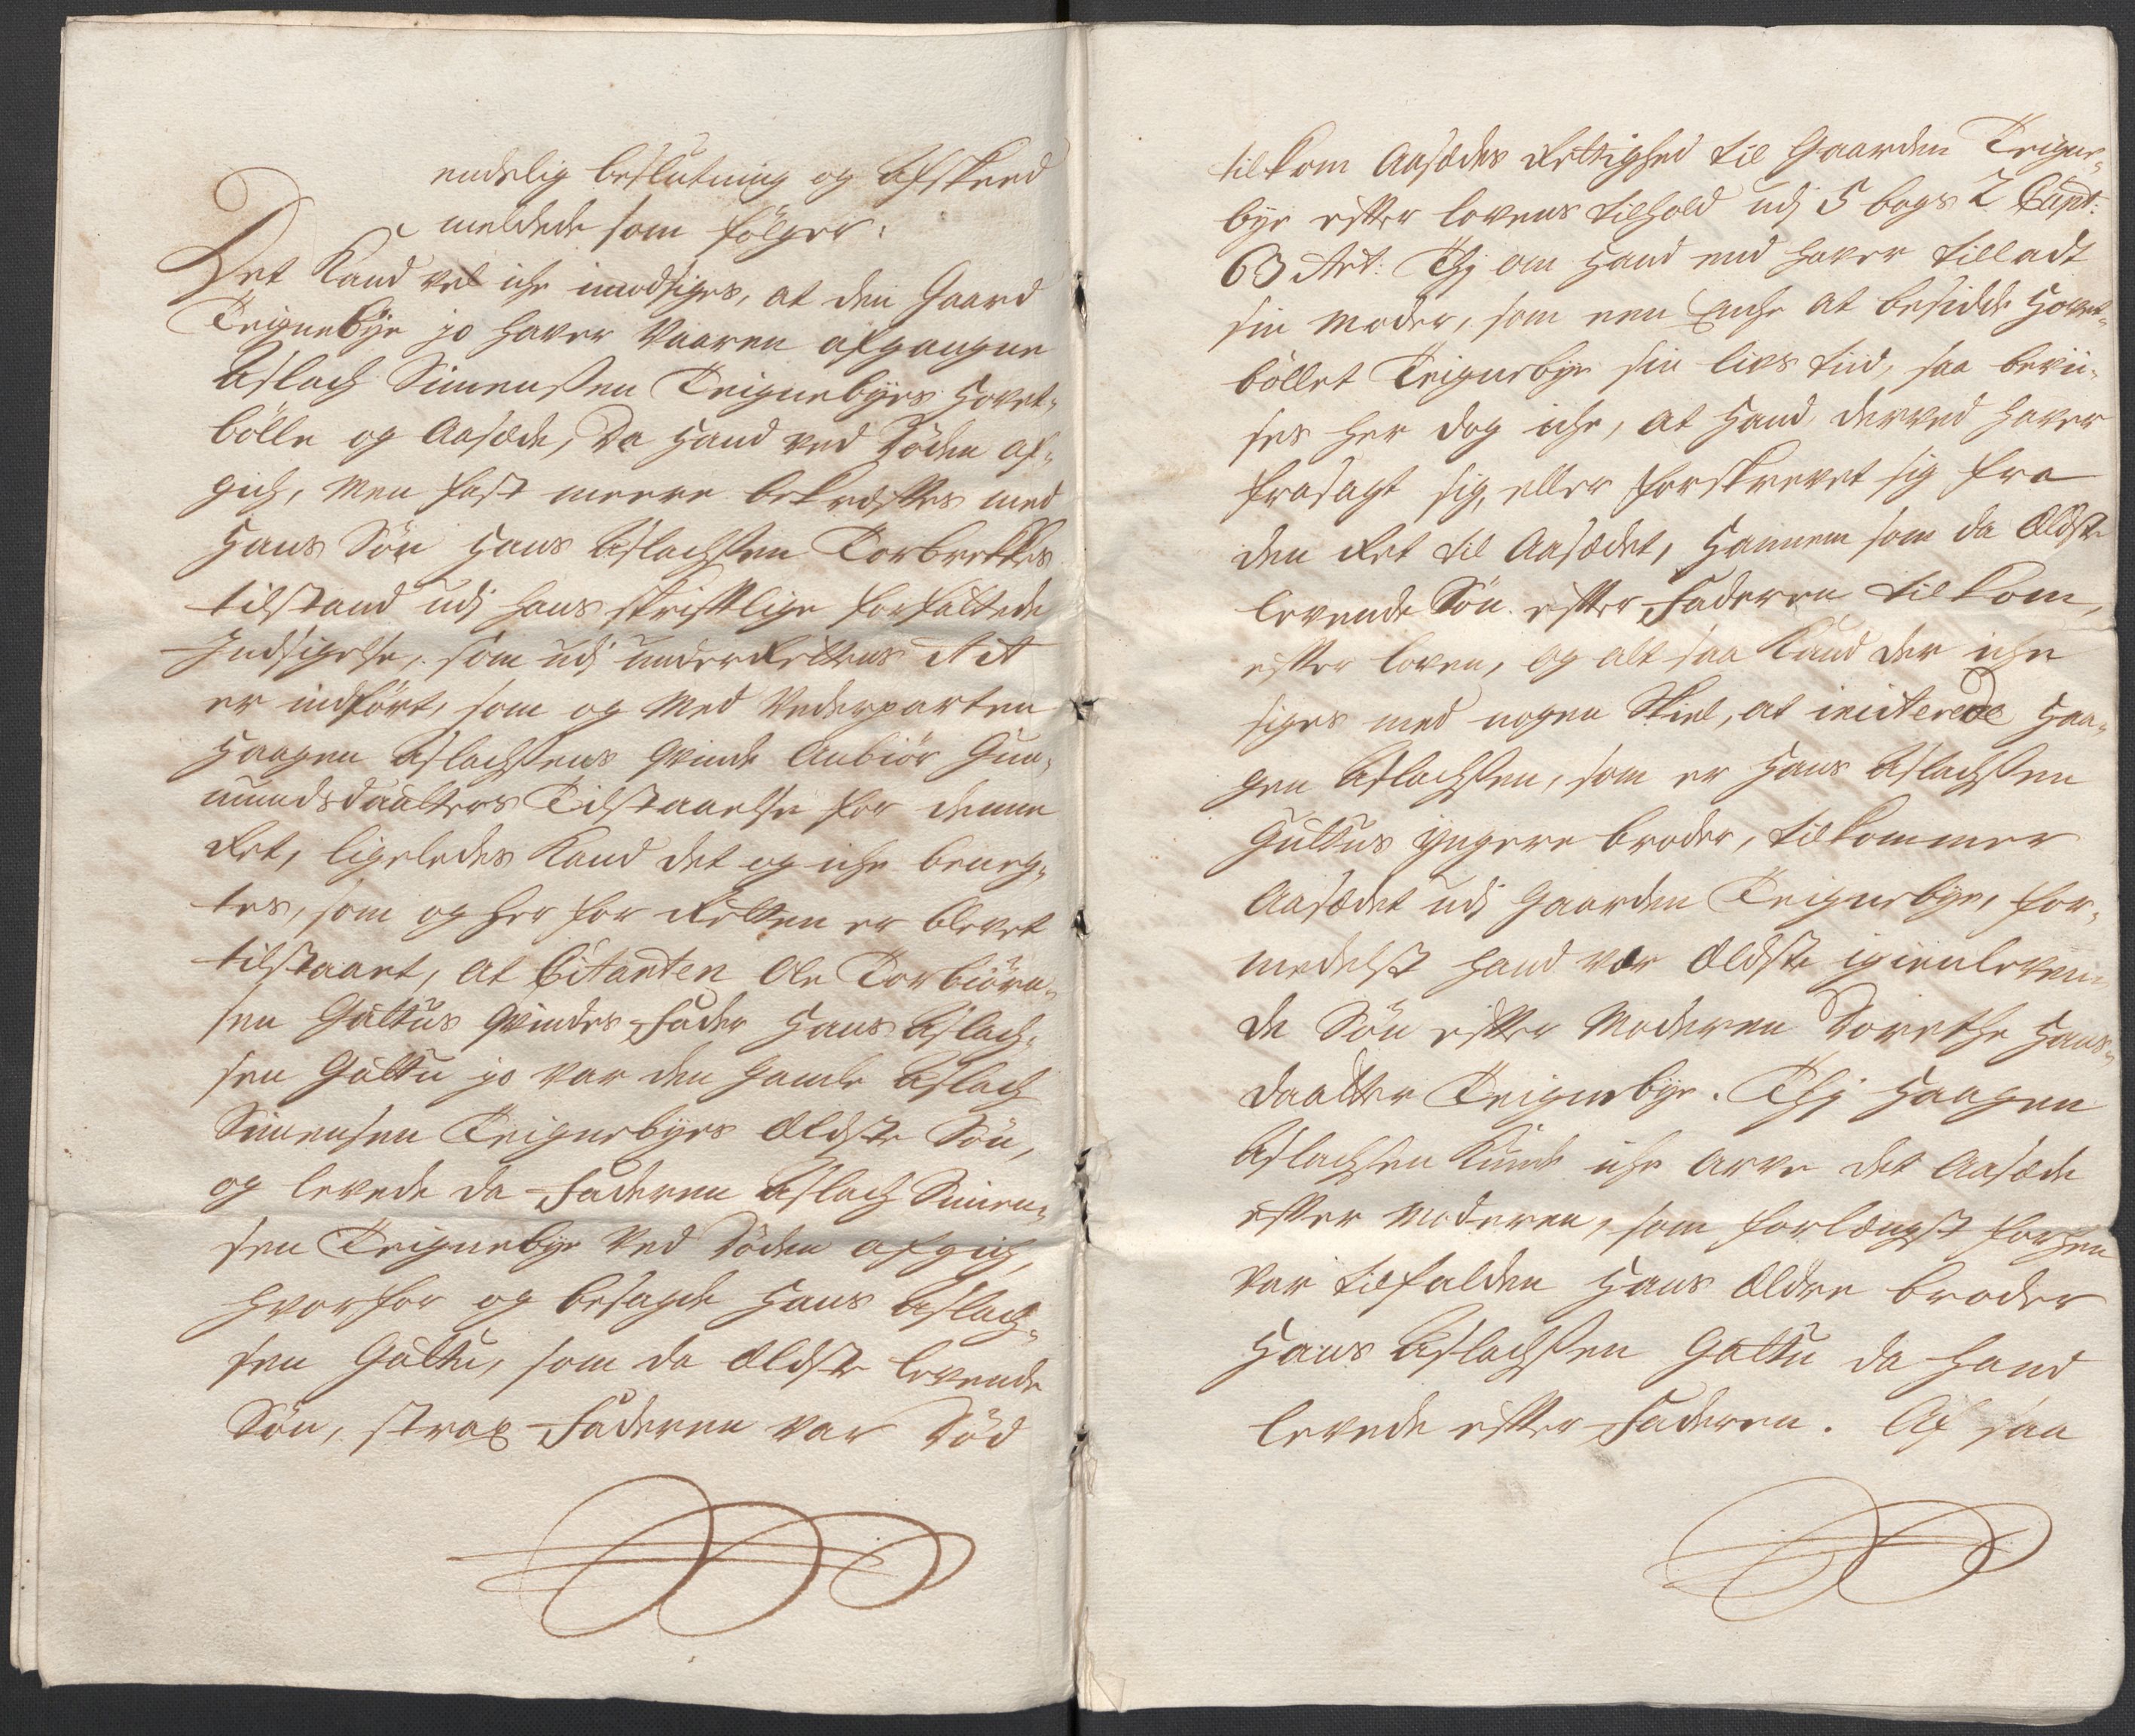 endelig beslutning og Afskeed
meldede som fölger:
Det kand vel iche imodsiges, at den Gaard
Teignebÿe jo haver vaaren afgangne
Aslach Simenssen Teignebÿes Hovet-
bölle og Aasæde, da hand ved döden af-
gich, men fast meere bekræftes med
Hans Sön Hans Aslachssen Torbrekkes
tilstand udj hans skriftlige forfattede
Indsigelse, som udj underRettens Act
er indfört, som og med Vederparten
Haagen Aslachssens qvinde Anbiör Gun-
mundsdaatters Tilstaaelse for denne
Ret, ligeledes kand det og iche benæg-
tes, som og her for Retten er blevet
tilstaaet, at Citanten Ole Torbiörn-
sen Gúltús qvindes Fader Hans Aslach-
sen Gúltú jo var den gamle Aslach
Simensen Teignebÿes Ældste Sön,
og levede da Faderen Aslach Simen-
sen Teignebÿe ved döden afgich,
hvorfor og besagde Hans Aslach-
sen Gúltú, som da Ældste levende
Sön, strax Faderen var död
tilkom Aasædes Rettighed til Gaarden Teigne-
bÿe efter lovens tilhold udj 5 bogs 2 Capt:
63 Art: Thj om hand end haver tilladt
sin moder, som een Enche at besidde Hovet-
böllet Teignebÿe sin livs tiid, saa bevii-
ses her dog iche, at hand derved haver
frasagt sig, eller forskrevet sig fra
den Ret til Aasædet, hannem som da Ældste
levende Sön efter Faderen tilkom,
efter loven, og altsaa kand der iche
siges med nogen Skiel, at inciterede Haa-
gen Aslachssen, som er Hans Aslachssen
Gúltús ÿngere broder, tilkommer
Aasædet udj Gaarden Teignebÿe, for-
medelst hand var Ældste igienleven-
de Sön efter Moderen Dorethe Hans-
daatter Teignebÿe. Thj Haagen
Aslachssen kunde iche arve det Aasæde
efter Moderen, som forlængst forhen
var tilfalden Hans Ældre broder
Hans Aslachssen Gúltú da hand
levede efter Faderen. Af saa